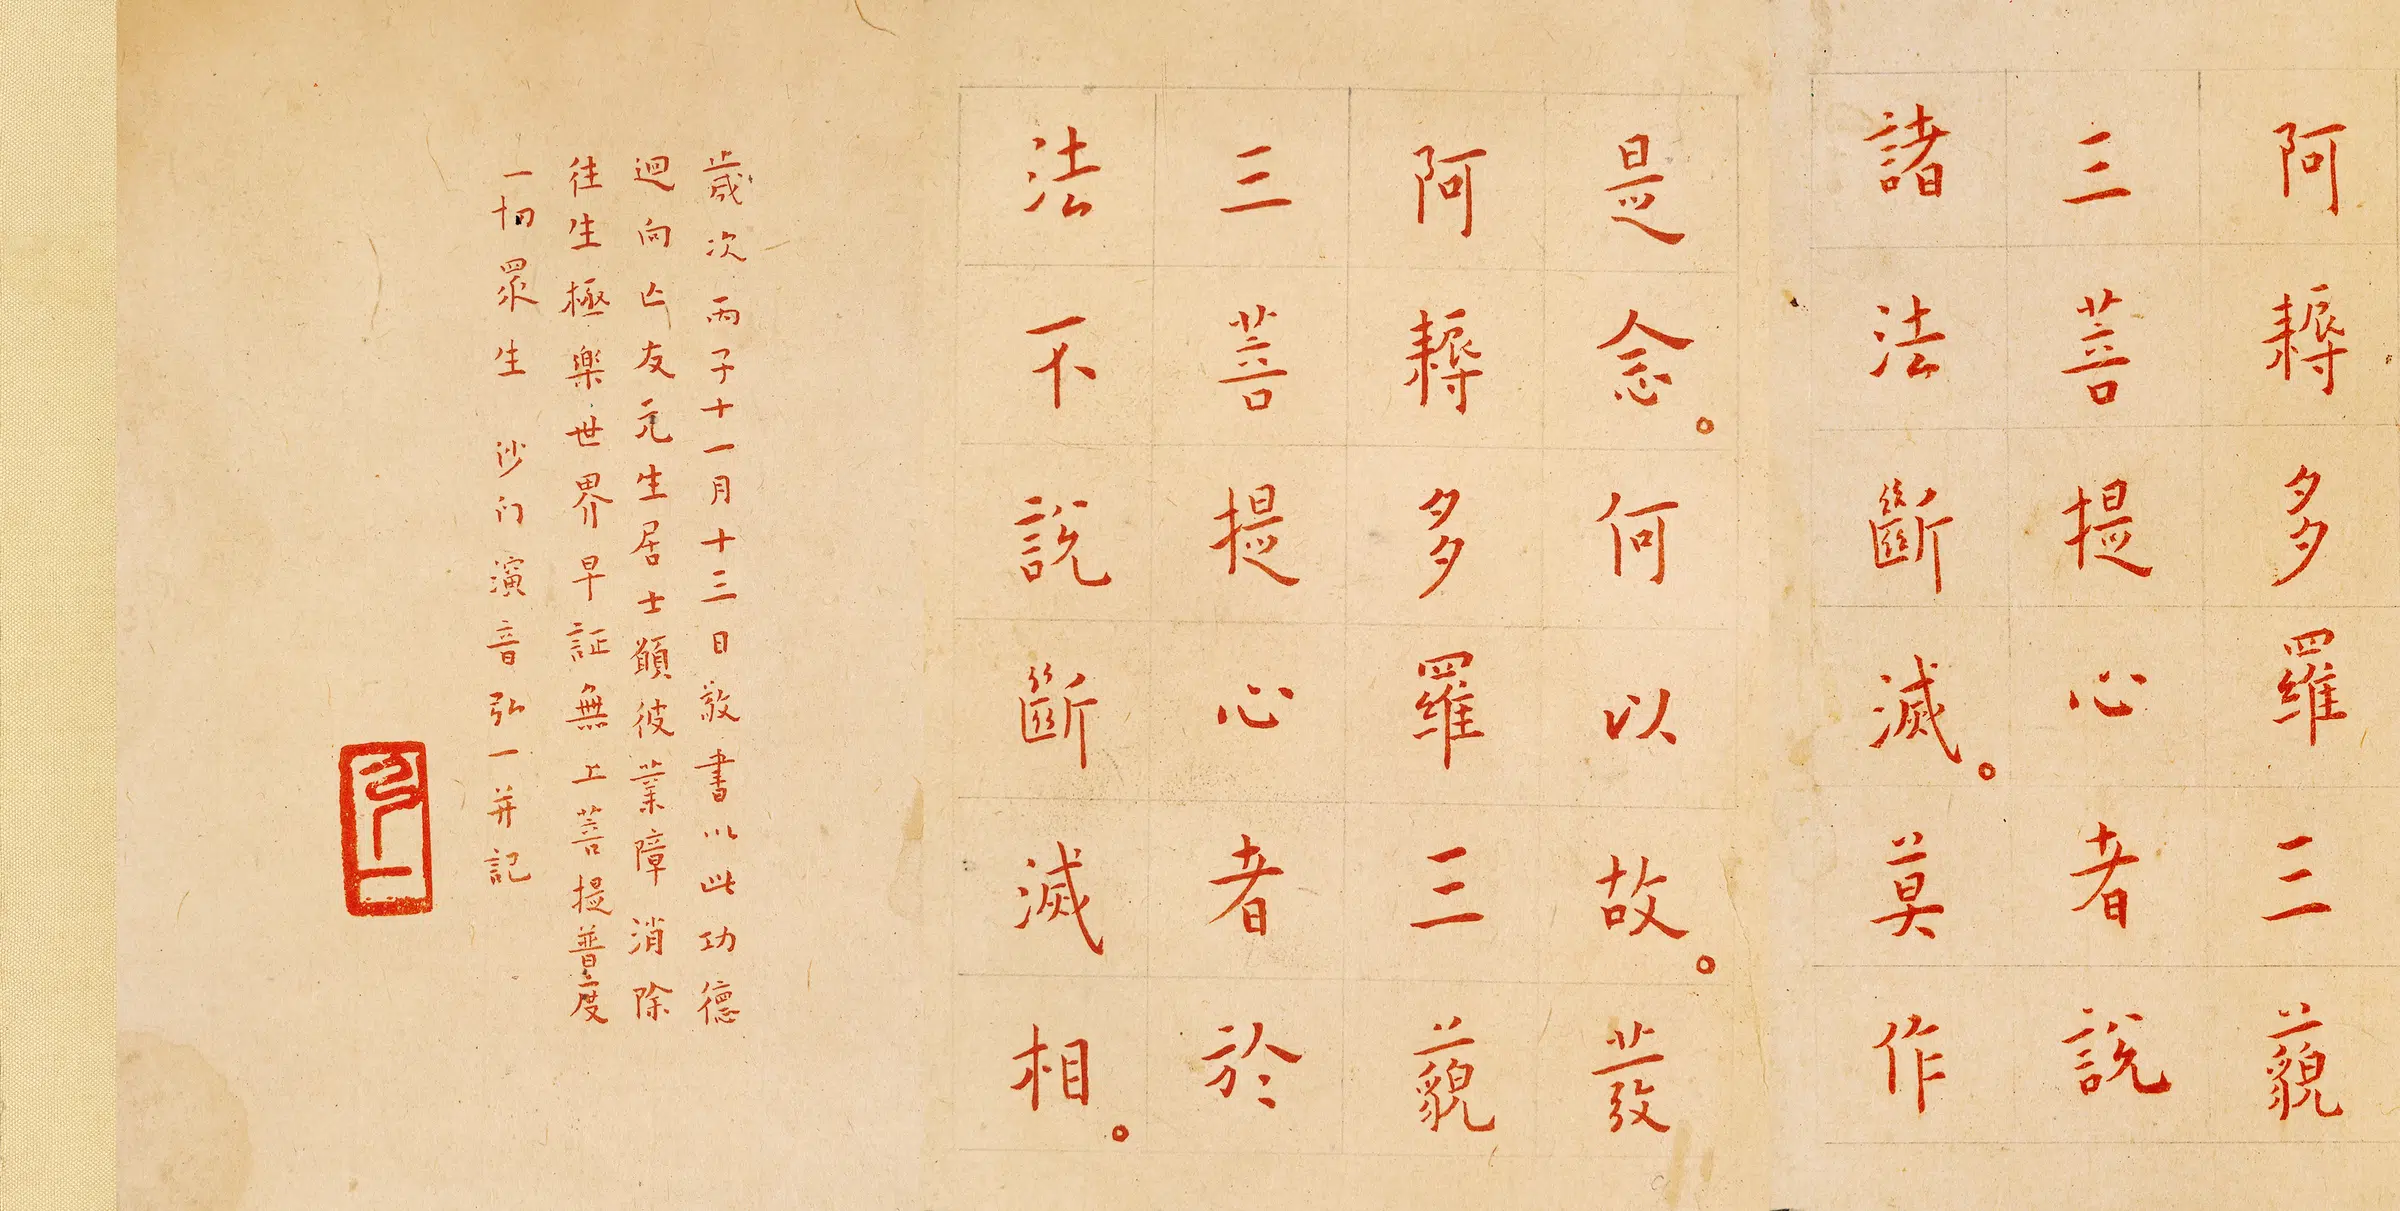 阿耨多羅三藐
三菩提心者說
諸法斷滅。莫作
是念。何以故。發
阿耨多羅三藐
三菩提心者於
法不說斷滅相。
歲次丙子十一月十三日敬書以此功德
迴向亡友元生居士願彼業障消除
往生極樂世界早証無上菩提普度
一切眾生 沙門演音弘一并記
弘一